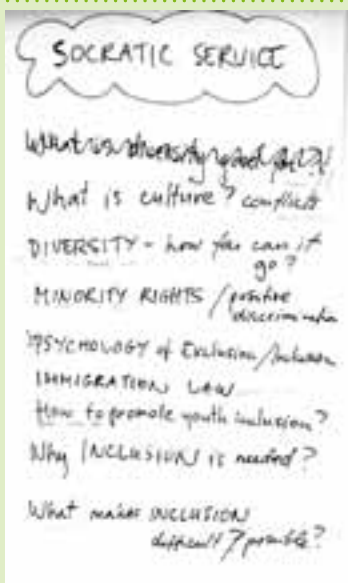 SOCRATIC SERVICE
What is diversity good for?!
What is culture? conflict
DIVERSITY - how far can it
go?
MINORITY RIGHTS / positive
discrimination
PSYCHOLOGY of Exclusion/Inclusion
IMMIGRATION LAW
How to promote youth inclusion?
Why INCLUSION is needed?
What makes INCLUSION
difficult? possible?